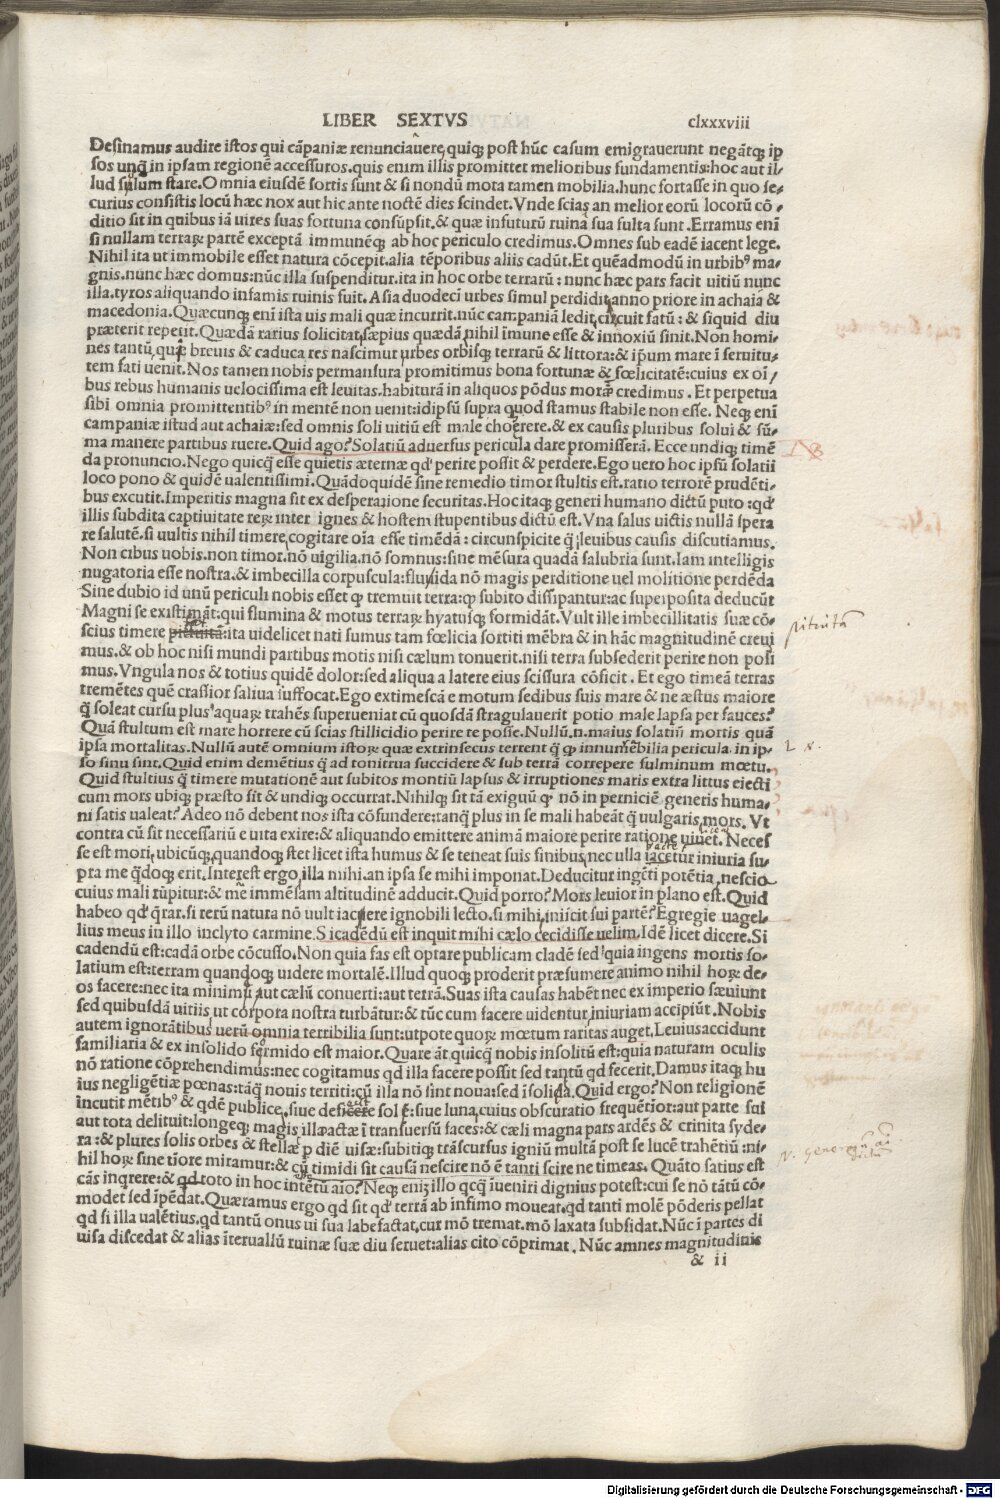 LIBER SEXTVS clxxxviii
Desinamus audire istos qui cāpaniæ renunciauere, quiqꝫ post hūc casum emigrauerunt negātqꝫ ip
sos unq̄ in ipsam regionē accessuros.quis enim illis promittet melioribus fundamentis:hoc aut il/
lud solum stare.Omnia eiusdē sortis sunt & si nondū mota tamen mobilia.hunc fortasse in quo se/
curius consistis locū hæc nox aut hic ante noctē dies scindet. Vnde scias an melior eorū locorū cō/
ditio sit in quibus iā uires suas fortuna consūpsit.& quæ infuturū ruina sua fulta sunt.Erramus enī
si nullam terraꝝ partē exceptā immunēqꝫ ab hoc periculo credimus.Omnes sub eadē iacent lege.
Nihil ita ut immobile esset natura cōcepit.alia tēporibus aliis cadūt.Et quēadmodū in urbibꝰ ma/
gnis.nunc hæc domus:nūc illa suspenditur.ita in hoc orbe terrarū: nunc hæc pars facit uitiū nunc
illa.tyros aliquando infamis ruinis fuit. Asia duodeci urbes simul perdidit,anno priore in achaia &
macedonia.Quæcunqꝫ enī ista uis mali quæ incurrit.nūc campaniā ledit,circuit fatū: & siquid diu
præterit repetit.Quædā rarius solicitat,sæpius quædā nihil īmune esse & innoxiū sinit.Non homi/
nes tantū,quæ breuis & caduca res nascimur urbes orbisqꝫ terrarū & littora:& ip̄um mare ī seruitu/
tem fati uenit.Nos tamen nobis permansura promitimus bona fortunæ & fœlicitatē:cuius ex oī/
bus rebus humanis uelocissima est leuitas.habiturā in aliquos pōdus morā credimus. Et perpetua
sibi omnia promittentibꝰ in mentē non uenit:idipsū supra quod stamus stabile non esse. Neqꝫ enī
campaniæ istud aut achaiæ:sed omnis soli uitiū est male choerere.& ex causis pluribus solui & sū/
ma manere partibus ruere.Quid ago? Solatiū aduersus pericula dare promisserā. Ecce undiqꝫ timē
da pronuncio.Nego quicq̄ esse quietis æternæ qd' perire possit & perdere.Ego uero hoc ipsū solatii
loco pono & quidē ualentissimi.Quādoquidē sine remedio timor stultis est.ratio terrorē prudēti/
bus excutit.Imperitis magna fit ex desperatione securitas.Hoc itaqꝫ generi humano dictū puto:qd'
illis subdita captiuitate reꝝ inter ignes & hostem stupentibus dictū est. Vna salus uictis nullā spera
re salutē.si uultis nihil timere,cogitare oīa esse timēda: circunspicite q̄ leuibus causis discutiamus.
Non cibus uobis.non timor.nō uigilia.nō somnus:sine mēsura quadā salubria sunt.Iam intelligis
nugatoria esse nostra.& imbecilla corpuscula:fluida nō magis perditione uel molitione perdēda
Sine dubio id unū periculi nobis esset ꝙ tremuit terra:ꝙ subito dissipantur:ac superposita deducūt
Magni se existimāt:qui flumina & motus terraꝝ hyatusqꝫ formidāt. Vult ille imbecillitatis suæ cō/
scius timere pictuitā:ita uidelicet nati sumus tam fœlicia sortiti mēbra & in hāc magnitudinē creui
mus.& ob hoc nisi mundi partibus motis nisi cælum tonuerit.nisi terra subsederit perire non possi
mus. Vngula nos & totius quidē dolor:sed aliqua a latere eius scissura cōficit. Et ego timeā terras
tremētes quē crassior saliua suffocat.Ego extimescā e motum sedibus suis mare & ne æstus maiore
q̄ soleat cursu plus aquaꝝ trahēs superueniat cū quosdā stragulauerit potio male lapsa per fauces?
Quā stultum est mare horrere cū scias stillicidio perire te posse. Nullū.n.maius solatiū mortis quā
ipsa mortalitas. Nullū autē omnium istoꝝ quæ extrinsecus terrent q̄ ꝙ innumerabilia pericula in ip/
so sinu sint.Quid enim demētius q̄ ad tonitrua succidere & sub terrā correpere fulminum mœtu.
Quid stultius q̄ timere mutationē aut subitos montiū lapsus & irruptiones maris extra littus eiecti
cum mors ubiqꝫ præsto sit & undiqꝫ occurrat.Nihilqꝫ sit tā exiguū ꝙ nō in perniciē generis huma/
ni satis ualeat? Adeo nō debent nos ista cōfundere:tanq̄ plus in se mali habeāt q̄ uulgaris mors. Vt
contra cū sit necessariū e uita exire:& aliquando emittere animā maiore perire ratione uiuet. Neces
se est mori,ubicūqꝫ,quandoqꝫ stet licet ista humus & se teneat suis finibus,nec ulla iacetur iniuria su/
pra me q̄doqꝫ erit.Interest ergo illa mihi.an ipsa se mihi imponat.Deducitur ingēti potētia,nescio
cuius mali rūpitur:& mē immēsam altitudinē adducit.Quid porro? Mors leuior in plano est.Quid
habeo qd' q̄rar.si rerū natura nō uult iacere ignobili lecto.si mihi iniicit sui partē? Egregie uagel/
lius meus in illo inclyto carmine.Si cadēdū est inquit mihi cælo cecidisse uelim.Idē licet dicere.Si
cadendū est:cadā orbe cōcusso.Non quia fas est optare publicam cladē sed quia ingens mortis so/
latium est:terram quandoqꝫ uidere mortalē.Illud quoqꝫ proderit præsumere animo nihil hoꝝ de/
os facere:nec ita minimū aut cælū conuerti:aut terrā.Suas ista causas habēt nec ex imperio sæuiunt
sed quibusdā uitiis ut corpora nostra turbātur:& tūc cum facere uidentur,iniuriam accipiūt. Nobis
autem ignorātibus uerū omnia terribilia sunt:utpote quoꝝ mœtum raritas auget.Leuius accidunt
familiaria & ex insolido formido est maior.Quare āt quicq̄ nobis insolitū est:quia naturam oculis
nō ratione cōprehendimus:nec cogitamus qd illa facere possit sed tantū qd fecerit.Damus itaqꝫ hu
ius negligētiæ pœnas:tāq̄ nouis territi:cū illa nō sint noua:sed īsolida.Quid ergo? Non religionē
incutit mētibꝰ & qdē publice,siue desicere sol ē:siue luna,cuius obscuratio frequētior:aut parte sui
aut tota delituit:longeqꝫ magis illæ actæ ī transuersū faces:& cæli magna pars ardēs & crinita syde/
ra:& plures solis orbes & stellæ p diē uisæ:subitiqꝫ trāscursus igniū multā post se lucē trahētiū:ni/
hil hoꝝ sine tiore miramur:& cū timidi sit causā nescire nō ē tanti scire ne timeas. Quāto satius est
cās inqrere:& qd toto in hoc intētū aīo? Neqꝫ eniꝫ illo qcq̄ īueniri dignius potest:cui se nō tātū cō/
modet sed īpēdat.Quæramus ergo qd sit qd' terrā ab infimo moueat.qd tanti molē pōderis pellat
qd si illa ualētius.qd tantū onus ui sua labefactat.cur mō tremat.mō laxata subsidat.Nūc ī partes di
uisa discedat & alias īteruallū ruinæ suæ diu seruet:alias cito cōprimat. Nūc amnes magnitudinis
& ii
pituitā
Digitalisierung gefördert durch die Deutsche Forschungsgemeinschaft - DFG